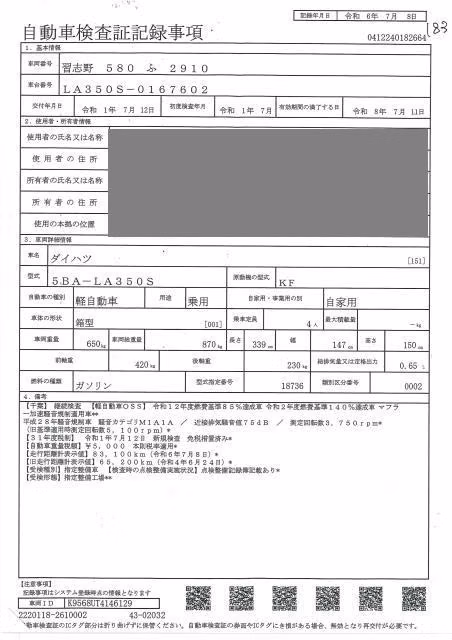 記録年月日 令和 6年 7月 8日
自動車検査証記録事項
0412240182664
(83
1. 基本情報
車両番号 習志野 580 ふ 2910
車台番号 LA350S-0167602
交付年月日 令和 1年 7月 12日 初度検査年月 令和 1年 7月 有効期間の満了する日 令和 8年 7月 11日
2. 使用者・所有者情報
使用者の氏名又は名称
使用者の住所
所有者の氏名又は名称
所有者の住所
使用の本拠の位置
3. 車両詳細情報
車名 ダイハツ [151]
型式 5BA-LA350S 原動機の型式 KF
自動車の種別 軽自動車 用途 乗用 自家用・事業用の別 自家用
車体の形状 箱型 [001] 乗車定員 4人 最大積載量 -kg
車両重量 650kg 車両総重量 870kg 長さ 339cm 幅 147cm 高さ 150cm
前軸重 420kg 後軸重 230kg 総排気量又は定格出力 0.65 L
燃料の種類 ガソリン 型式指定番号 18736 類別区分番号 0002
4. 備考
【千葉】 継続検査 【軽自動車OSS】 令和12年度燃費基準85%達成車 令和2年度燃費基準140%達成車 マフラ
ー加速騒音規制適用車**
平成28年騒音規制車 騒音カテゴリM1A1A / 近接排気騒音値75dB / 測定回転数3,750rpm*
(旧基準適用時測定回転数5,100rpm)*
【31年度税制】 令和1年7月12日 新規検査 免税措置済み*
【自動車重量税額】 ¥5,000 本則税率適用*
【走行距離計表示値】 83,100km (令和6年7月8日)*
【旧走行距離計表示値】 65,200km (令和4年6月24日)*
【受検種別】指定整備車 【検査時の点検整備実施状況】点検整備記録簿記載あり*
【受検形態】指定整備工場**
【注意事項】
記録事項はシステム登録時点の情報となります
車両ID K9568UT4146129
2220118-2610002 43-02032
自動車検査証のICタグ部分は折り曲げずに保管ください。自動車検査証の券面やICタグにき損がある場合、無効となり再交付が必要です。